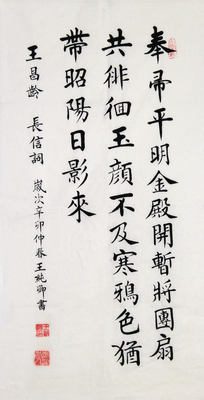 奉帚平明金殿開暫將團扇
共徘徊玉顏不及寒鴉色猶
帶昭陽日影來
王昌齡 長信詞 歲次辛卯仲春王純卿書